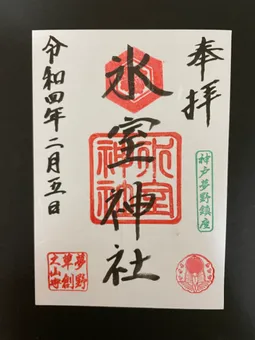 奉拝
村戸夢野鎮座
氷室神社
氷室神社
令和四年二月五日
夢野
草創